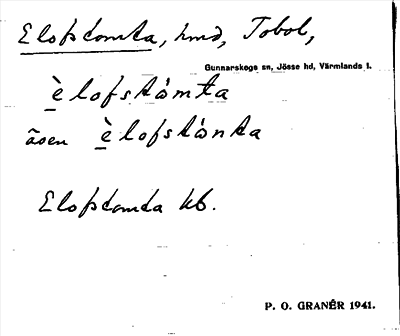 Elofstomta, hmd, Tobol,
Gunnarskogs sn, Jösse hd, Värmlands l.
è̱lofståmta
äsen è̱lofstånta
Elofstomta kb.
P. O. GRANÉR 1941.